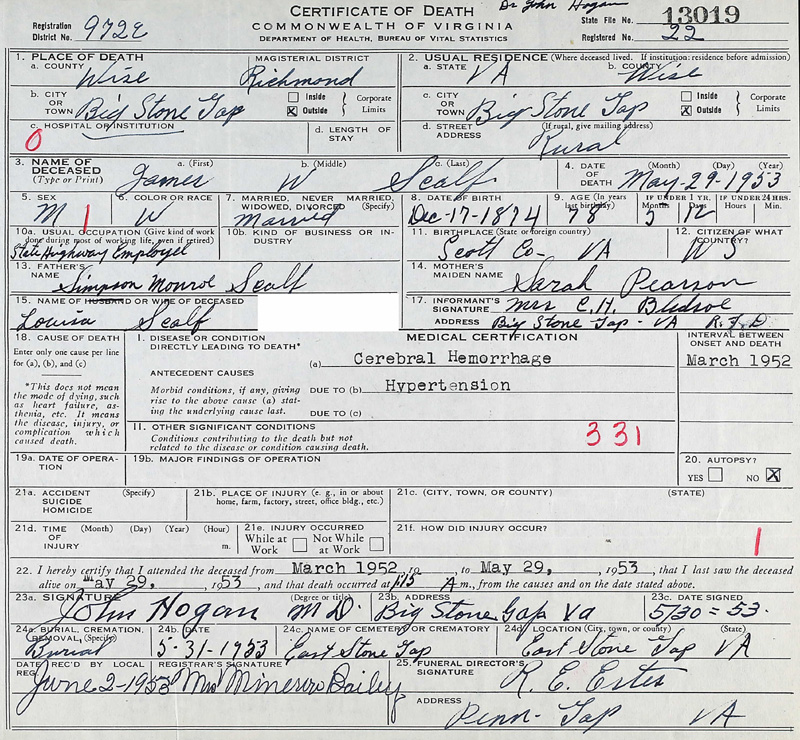 CERTIFICATE OF DEATH
Dr John Hogan
COMMONWEALTH OF VIRGINIA
DEPARTMENT OF HEALTH, BUREAU OF VITAL STATISTICS
Registration District No. 972E
State File No. 13019
Registered No. 22
1. PLACE OF DEATH
a. COUNTY Wise
MAGISTERIAL DISTRICT Richmond
b. CITY OR TOWN Big Stone Gap
Inside
☒ Outside
Corporate Limits
c. HOSPITAL OR INSTITUTION
0
d. LENGTH OF STAY
2. USUAL RESIDENCE (Where deceased lived. If institution: residence before admission)
a. STATE VA
b. COUNTY Wise
c. CITY OR TOWN Big Stone Gap
Inside
☒ Outside
Corporate Limits
d. STREET ADDRESS (If rural, give mailing address) Rural
3. NAME OF DECEASED (Type or Print)
a. (First) James
b. (Middle) W
c. (Last) Scalf
4. DATE OF DEATH (Month) (Day) (Year) May-29-1953
5. SEX M
1
6. COLOR OR RACE W
7. MARRIED, NEVER MARRIED, WIDOWED, DIVORCED (Specify) Married
8. DATE OF BIRTH Dec-17-1874
9. AGE (In years last birthday) 78
IF UNDER 1 YR. Months 5 Days 12
IF UNDER 24 HRS. Hours Min.
10a. USUAL OCCUPATION (Give kind of work done during most of working life, even if retired) State Highway Employee
10b. KIND OF BUSINESS OR INDUSTRY
11. BIRTHPLACE (State or foreign country) Scott Co- VA
12. CITIZEN OF WHAT COUNTRY? US
13. FATHER'S NAME Simpson Monrol Scalf
14. MOTHER'S MAIDEN NAME Sarah Pearson
15. NAME OF HUSBAND OR WIFE OF DECEASED Louisa Scalf
17. INFORMANT'S SIGNATURE Mrs C.H. Bledsoe
ADDRESS Big Stone Gap - VA R.F.D
18. CAUSE OF DEATH
Enter only one cause per line for (a), (b), and (c)
*This does not mean the mode of dying, such as heart failure, asthenia, etc. It means the disease, injury, or complication which caused death.
MEDICAL CERTIFICATION
INTERVAL BETWEEN ONSET AND DEATH
I. DISEASE OR CONDITION DIRECTLY LEADING TO DEATH*
(a) Cerebral Hemorrhage
March 1952
ANTECEDENT CAUSES
Morbid conditions, if any, giving rise to the above cause (a) stating the underlying cause last.
DUE TO (b) Hypertension
DUE TO (c)
II. OTHER SIGNIFICANT CONDITIONS
Conditions contributing to the death but not related to the disease or condition causing death.
331
19a. DATE OF OPERATION
19b. MAJOR FINDINGS OF OPERATION
20. AUTOPSY?
YES NO ☒
21a. ACCIDENT SUICIDE HOMICIDE (Specify)
21b. PLACE OF INJURY (e. g., in or about home, farm, factory, street, office bldg., etc.)
21c. (CITY, TOWN, OR COUNTY) (STATE)
21d. TIME OF INJURY (Month) (Day) (Year) (Hour) m.
21e. INJURY OCCURRED
While at Work Not While at Work
21f. HOW DID INJURY OCCUR?
1
22. I hereby certify that I attended the deceased from March 1952, to , to May 29, , 1953, that I last saw the deceased
alive on May 29, , 1953, and that death occurred at 1:15 A m., from the causes and on the date stated above.
23a. SIGNATURE (Degree or title) John Hogan M D.
23b. ADDRESS Big Stone Gap Va
23c. DATE SIGNED 5/30=53.
24a. BURIAL, CREMATION, REMOVAL, (Specify) Burial
24b. DATE 5-31-1953
24c. NAME OF CEMETERY OR CREMATORY East Stone Gap
24d. LOCATION (City, town, or county) (State) East Stone Gap VA
DATE REC'D BY LOCAL REG. June 2-1953
REGISTRAR'S SIGNATURE Mrs Bailey
25. FUNERAL DIRECTOR'S SIGNATURE R. E. Estes
ADDRESS Penn-Gap VA